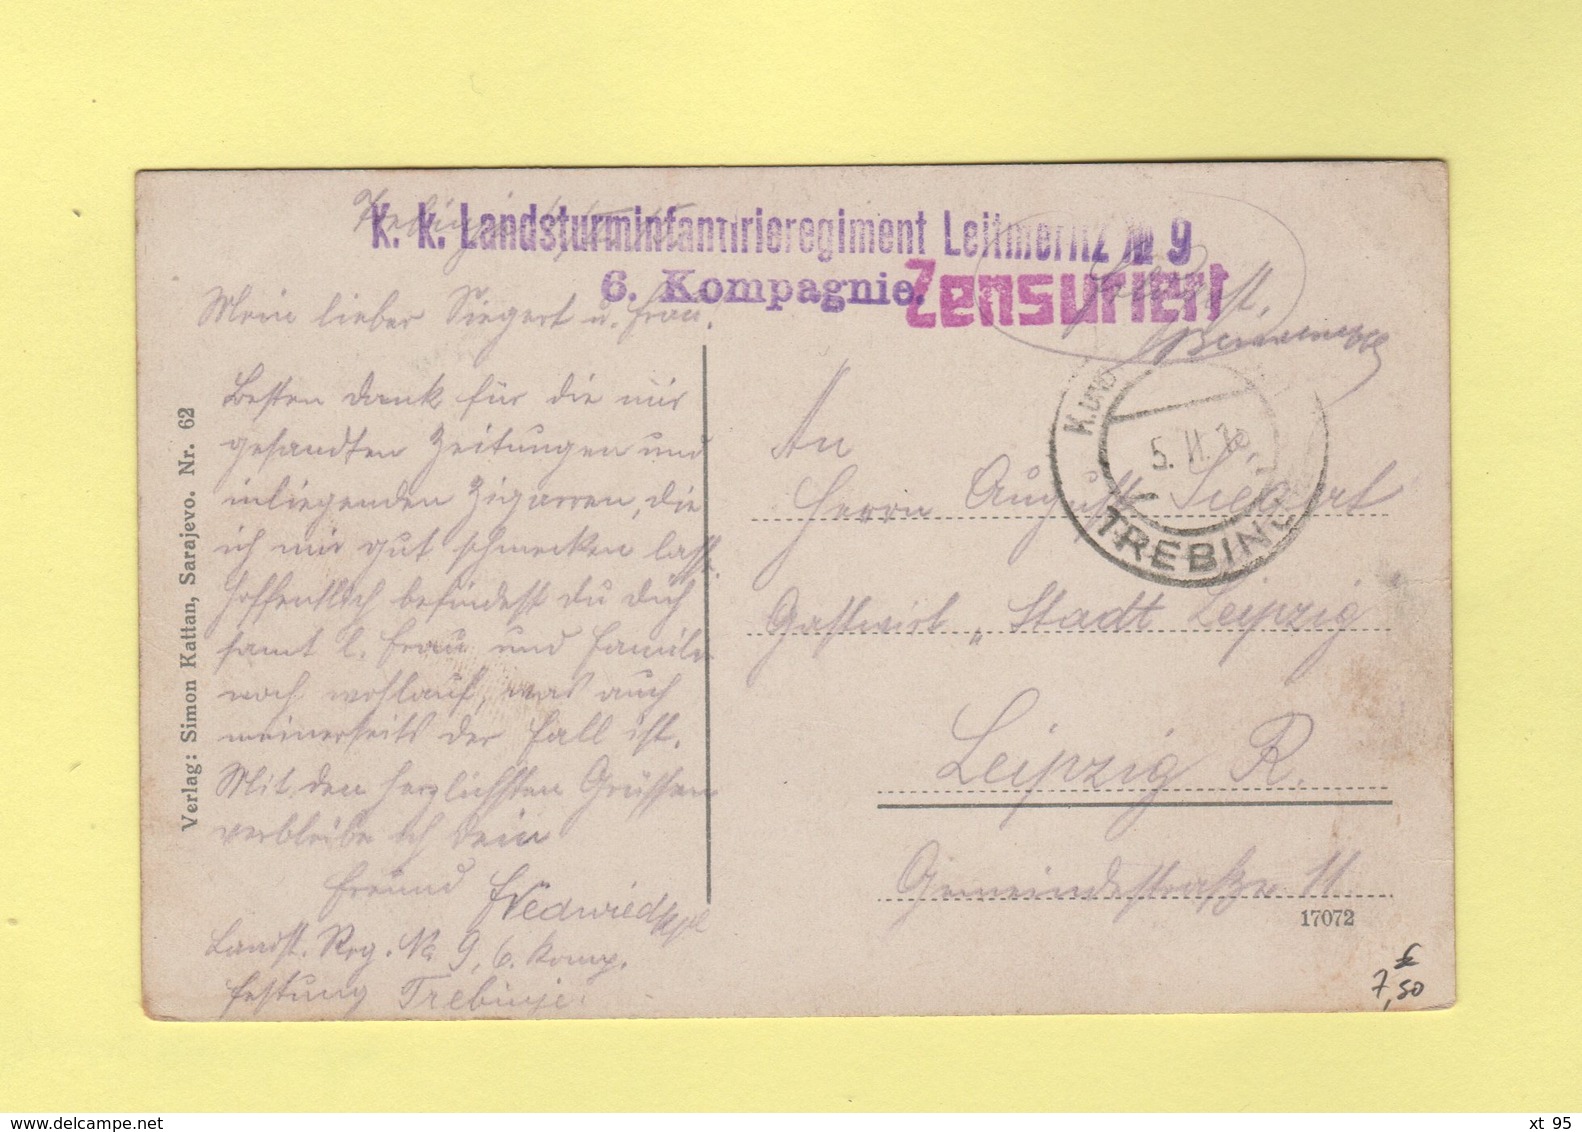 Trebinje
K. k. Landsturminfantirieregiment Leitmeritz № 9
6. Kompagnie.
Zensuriert
Feldpost.
Mein lieber Siegert u. Frau!
Besten Dank für die mir
gesandten Zeitungen und
inliegenden Zigarren, die
ich mir gut schmecken lasse.
Hoffentlich befindest du dich
samt l. Frau und Familie
noch wohlauf, was auch
meinerseits der Fall ist.
Mit den herzlichsten Grüssen
verbleibe ich dein
Freund
Landst. Reg. No 9, 6. Komp.
Festung Trebinje.
Verlag: Simon Kattan, Sarajevo. Nr. 62
K. UND
5. II.
TREBINJE
An
Herrn August Siegert
Gastwirt „Stadt Leipzig"
Leipzig R.
Gemeindestraße 11.
17072
€
7,50
www.delcampe.net
xt 95